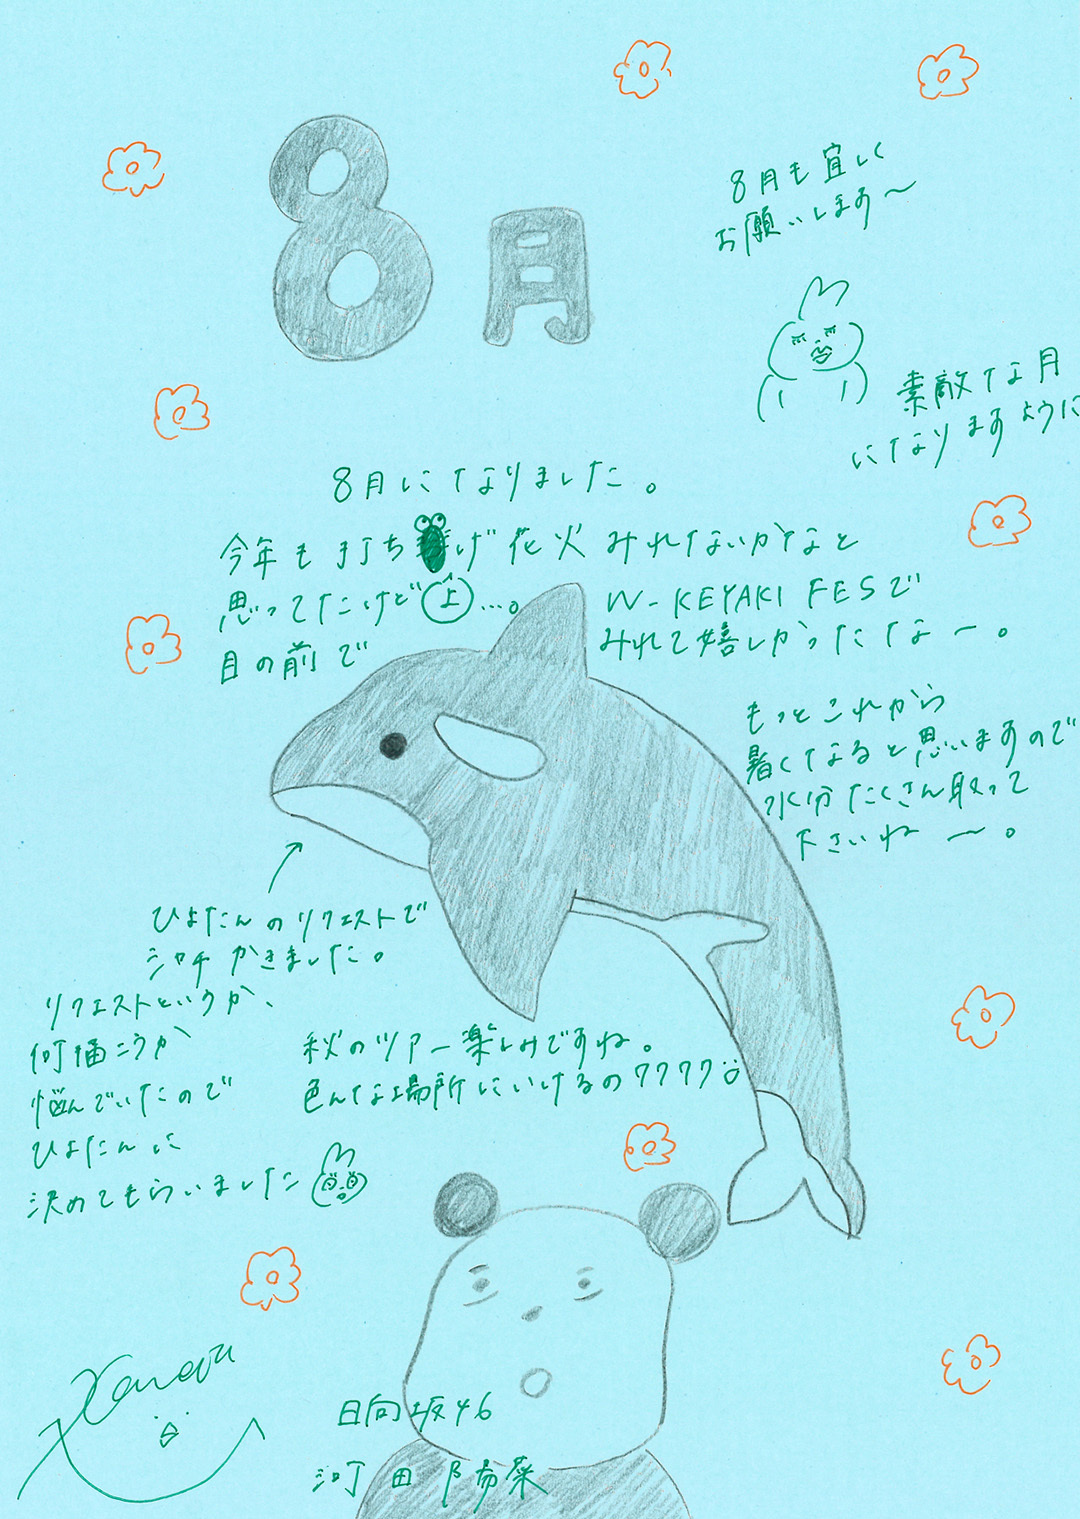 8月
8月も宜しく
お願いします〜
素敵な月
になりますように
8月になりました。
今年も打ち げ花火みれないかなと
思ってたけど上...。
目の前で
W-KEYAKI FESで
みれて嬉しかったなー。
もっとこれから
暑くなると思いますので
水分たくさん取って
下さいね〜。
ひよたんのリクエストで
シャチかきました。
リクエストというか、
何描こうか
悩んでいたので
ひよたんに
決めてもらいました
秋のツアー楽しみですね。
色んな場所にいけるのワクワク
日向坂46
河田陽菜